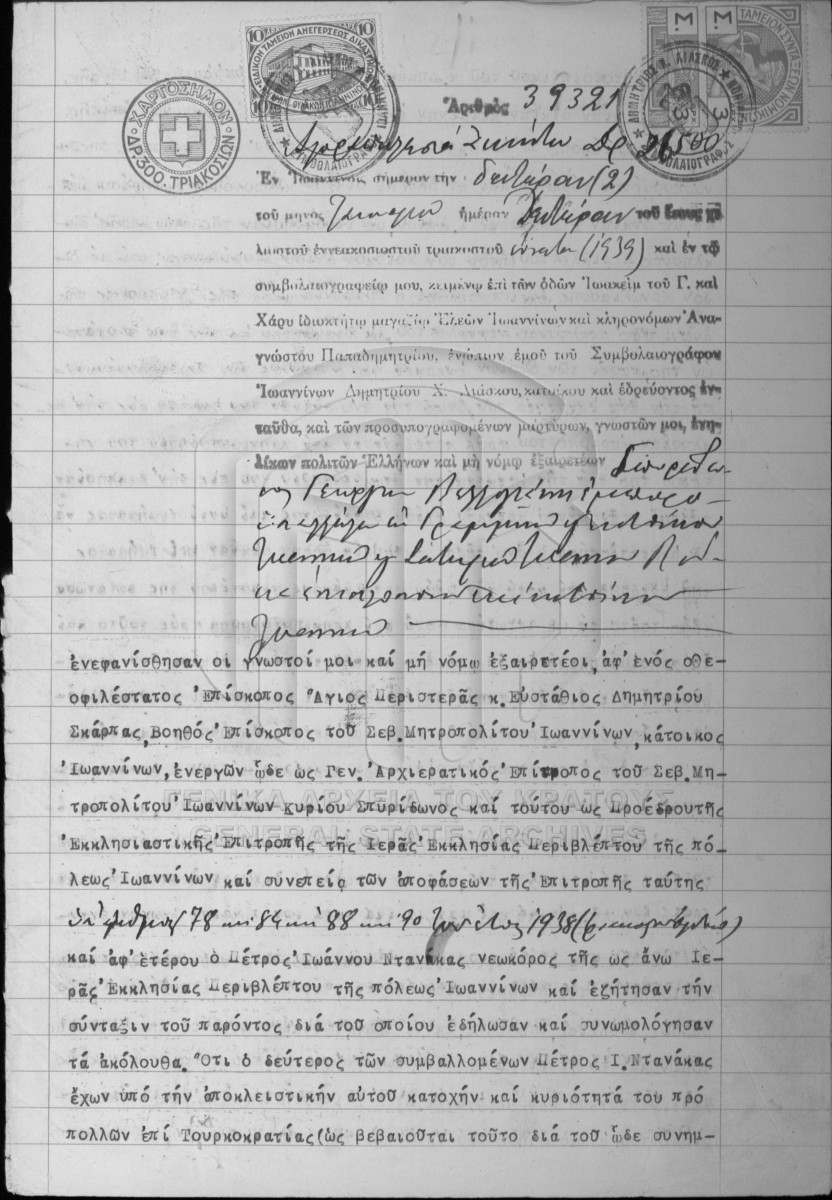 ΕΙΔΙΚΟΝ ΤΑΜΕΙΟΝ ΑΝΕΓΕΡΣΕΩΣ ΔΙΚΑΣΤΙΚΩΝ
10 10
ΤΑΜΕΙΟΝ ΣΥΝΤΑΞΕΩΝ ΝΟΜΙΚΩΝ
Μ. Μ.
3
ΧΑΡΤΟΣΗΜΟΝ
ΔΡ. 300. ΤΡΙΑΚΟΣΙΩΝ
ΔΗΜΗΤΡΙΟΣ Χ. ΛΙΑΣΚΟΣ
ΣΥΜΒΟΛΑΙΟΓΡΑΦΟΣ
Ἀριθμὸς 39321
Ἀγοραπωλησία Ἀκινήτου Δρ 26,500
Ἐν Ἰωαννίνοις σήμερον τὴν δευτέραν (2)
τοῦ μηνὸς Ἰανουαρίου ἡμέραν Δευτέραν τοῦ ἔτους χι
λιοστοῦ ἐννεακοσιοστοῦ τριακοστοῦ ἐνάτου (1939) καὶ ἐν τῷ
συμβολαιογραφείῳ μου, κειμένῳ ἐπὶ τῶν ὁδῶν Ἰωακεὶμ τοῦ Γ. καὶ
Χάρυ ἰδιοκτήτῳ μαγαζίῳ Ἐλεῶν Ἰωαννίνων καὶ κληρονόμων Ἀνα-
γνώστου Παπαδημητρίου, ἐνώπιον ἐμοῦ τοῦ Συμβολαιογράφου
Ἰωαννίνων Δημητρίου Χ. Λιάσκου, κατοίκου καὶ ἑδρεύοντος ἐν-
ταῦθα, καὶ τῶν προσυπογραφομένων μαρτύρων, γνωστῶν μοι, ἐνη-
λίκων πολιτῶν Ἑλλήνων καὶ μὴ νόμῳ ἐξαιρετέων
Γεωργίου
Ἰωαννίνων
ἐνεφανίσθησαν οἱ γνωστοί μοι καί μή νόμῳ ἐξαιρετέοι, ἀφ'ἑνός ὁ Θε-
οφιλέστατος Ἐπίσκοπος Ἅγιος Περιστερᾶς κ. Εὐστάθιος Δημητρίου
Σκάρπας, Βοηθός Ἐπίσκοπος τοῦ Σεβ. Μητροπολίτου Ἰωαννίνων, κάτοικος
Ἰωαννίνων, ἐνεργῶν ὧδε ὡς Γεν. Ἀρχιερατικός Ἐπίτροπος τοῦ Σεβ. Μη-
τροπολίτου Ἰωαννίνων Κυρίου Σπυρίδωνος καί τούτου ὡς Προέδρου τῆς
ΓΕΝΙΚΑ ΑΡΧΕΙΑ ΤΟΥ ΚΡΑΤΟΥΣ
Ἐκκλησιαστικῆς Ἐπιτροπῆς τῆς Ἱερᾶς Ἐκκλησίας Περιβλέπτου τῆς πό-
GENERAL STATE ARCHIVES
λεως Ἰωαννίνων καί συνεπείᾳ τῶν ἀποφάσεων τῆς Ἐπιτροπῆς ταύτης
ὑπ' ἀριθμούς 78 καί 84 καί 88 καί 90 τοῦ ἔτους 1938
καί ἀφ'ἑτέρου ὁ Πέτρος Ἰωάννου Ντανάκας νεωκόρος τῆς ὡς ἄνω Ἱε-
ρᾶς Ἐκκλησίας Περιβλέπτου τῆς πόλεως Ἰωαννίνων καί ἐζήτησαν τήν
σύνταξιν τοῦ παρόντος διά τοῦ ὁποίου ἐδήλωσαν καί συνωμολόγησαν
τά ἀκόλουθα. Ὅτι ὁ δεύτερος τῶν συμβαλλομένων Πέτρος Ι. Ντανάκας
ἔχων ὑπό τήν ἀποκλειστικήν αὐτοῦ κατοχήν καί κυριότητά του πρό
πολλῶν ἐπί Τουρκοκρατίας (ὡς βεβαιοῦται τοῦτο διά τοῦ ὧδε συνημ-